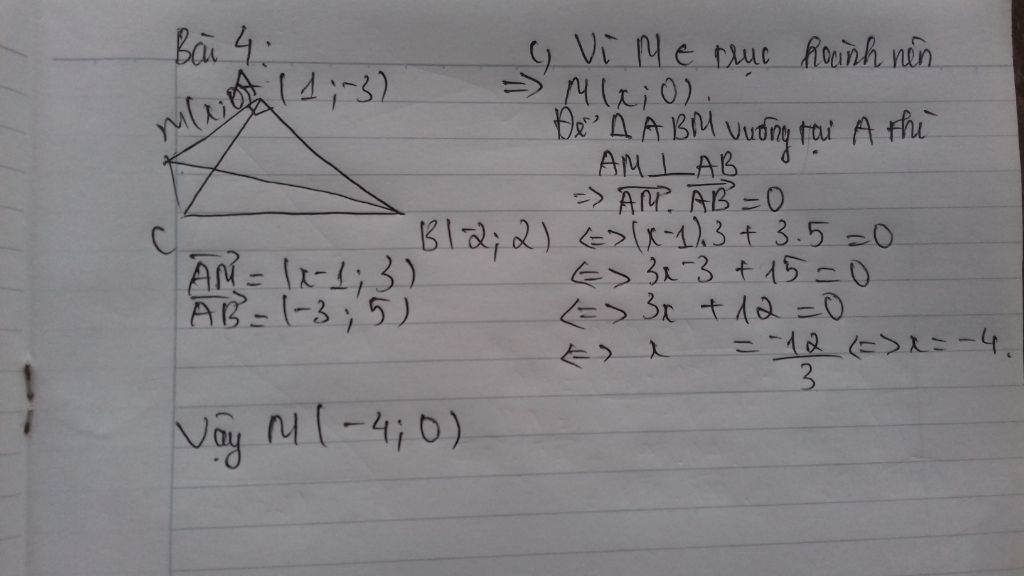 Bài 4:
A (1;-3)
M(x;0)
C
B(-2; 2)
AM = (x-1; 3)
AB = (-3; 5)
c, Vì M ∈ trục hoành nên
=> M(x; 0).
Để Δ ABM vuông tại A thì
AM ⊥ AB
=> AM. AB = 0
<=> (x-1).3 + 3.5 = 0
<=> 3x-3 + 15 = 0
<=> 3x + 12 = 0
<=> x = -12/3 <=> x = -4.
Vậy M (-4; 0)